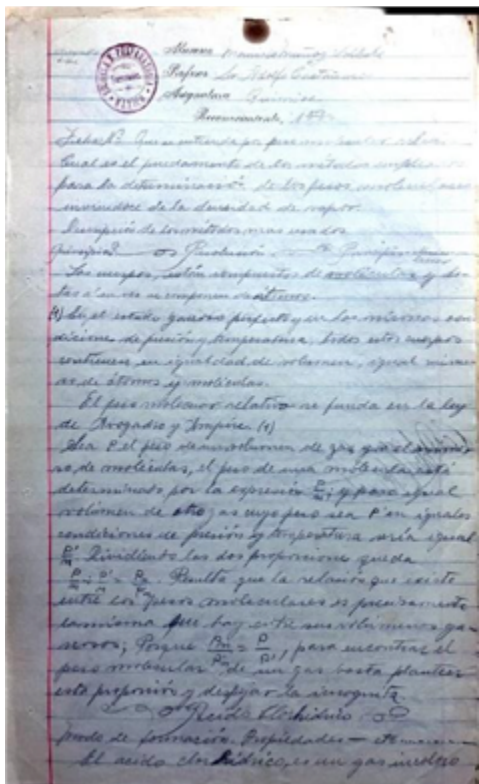 Alumno Mauricio Muñoz
Profesor Sr. Adolfo
Asignatura Química
ESCUELA N. PREPARATORIA
MEXICO
Ficha Nº Que se entiende por peso molecular relativo
Cual es el fundamento de los métodos empleados
para la determinación de los pesos moleculares
de la densidad de vapor.
Descripción de los métodos mas usados
Resolución
Los cuerpos, están compuestos de moléculas y
a su vez se componen de átomos.
(1) En el estado gaseoso perfecto y en las mismas con
diciones de presión y temperatura, todos estos cuerpos
contienen en igualdad de volumen, igual núme
ro de átomos y moléculas.
El peso molecular relativo se funda en la ley
de Avogadro y Ampère. (1)
Sea P el peso de un volumen de gas y el núme
ro de moléculas, el peso de una molécula está
determinado por la expresión P/m; y para igual
volúmen de otro gas cuyo peso sea P' en iguales
condiciones de presión y temperatura sería igual
P'/m. Dividiendo las dos proporciones queda
Resulta que la relación que existe
entre los pesos moleculares es precisamente
la misma que hay entre sus volúmenes ga
seosos; Porque para encontrar el
peso molecular de un gas basta plantear
esta proporción y despejar la incognita
Acido Clorhidrico
Modo de formación. Propiedades
El acido clorhídrico, es un gas incoloro